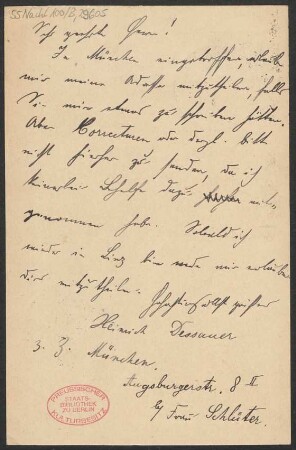 55 Nachl 100/B, 29605
Sehr geehrter Herr!
In München eingetroffen erlaube
mir meine Adresse mitzutheilen, falls
Sie mir etwas zu schreiben hätten.
Aber Correcturen oder dergl. bitte
nicht hierher zu senden, da ich
keinerlei Behelfe dazu mit-
genommen habe. Sobald ich
wieder in Linz bin werde mir erlauben
dies mitzutheilen. Hochachtungsvollst
Heinrich Dessauer
z. Z. München.
Augsburgerstr. 8 II
b/ Frau Schlüter.
PREUSSISCHER
STAATS-
BIBLIOTHEK
ZU BERLIN
KULTURBESITZ